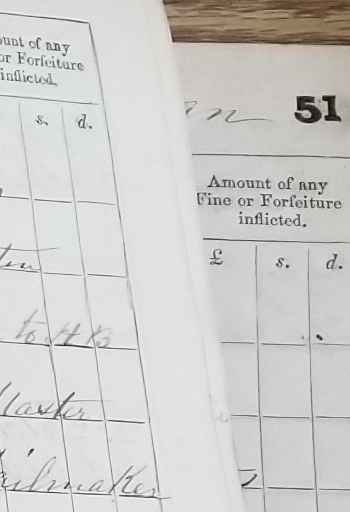 unt of any
or Forfeiture
inflicted.
s. d.
to
Master
ilmaker
51
Amount of any
Fine or Forfeiture
inflicted.
£ s. d.